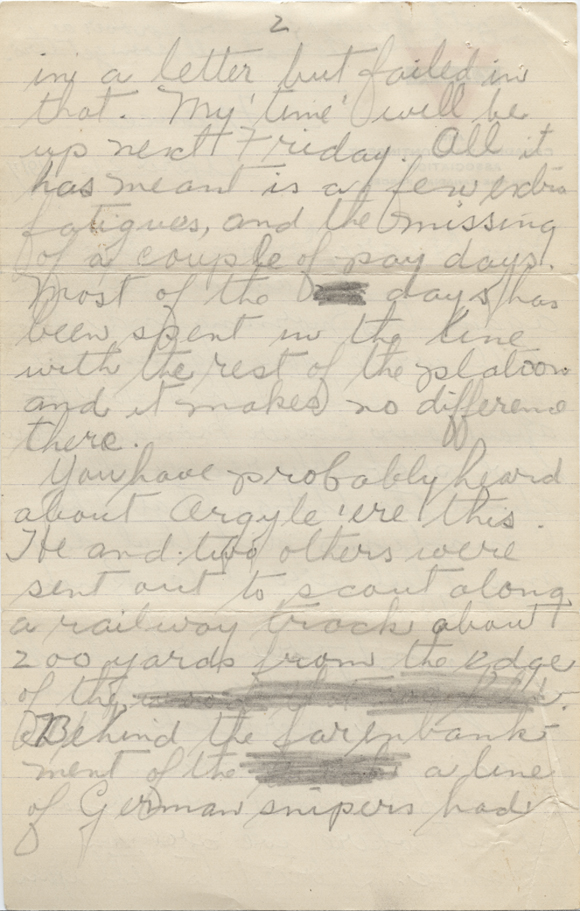 2
ing a letter but failed in
that. My 'time' will be
up next Friday. All it
has meant is a few extra
fatigues, and the missing
of a couple of pay days.
Most of the days has
been spent in the line
with the rest of the platoon
and it makes no difference
there.
You have probably heard
about Argyle 'ere this.
He and two others were
sent out to scout along
a railway track about
200 yards from the edge
of the
Behind the far enbank-
ment of the a line
of German snipers had